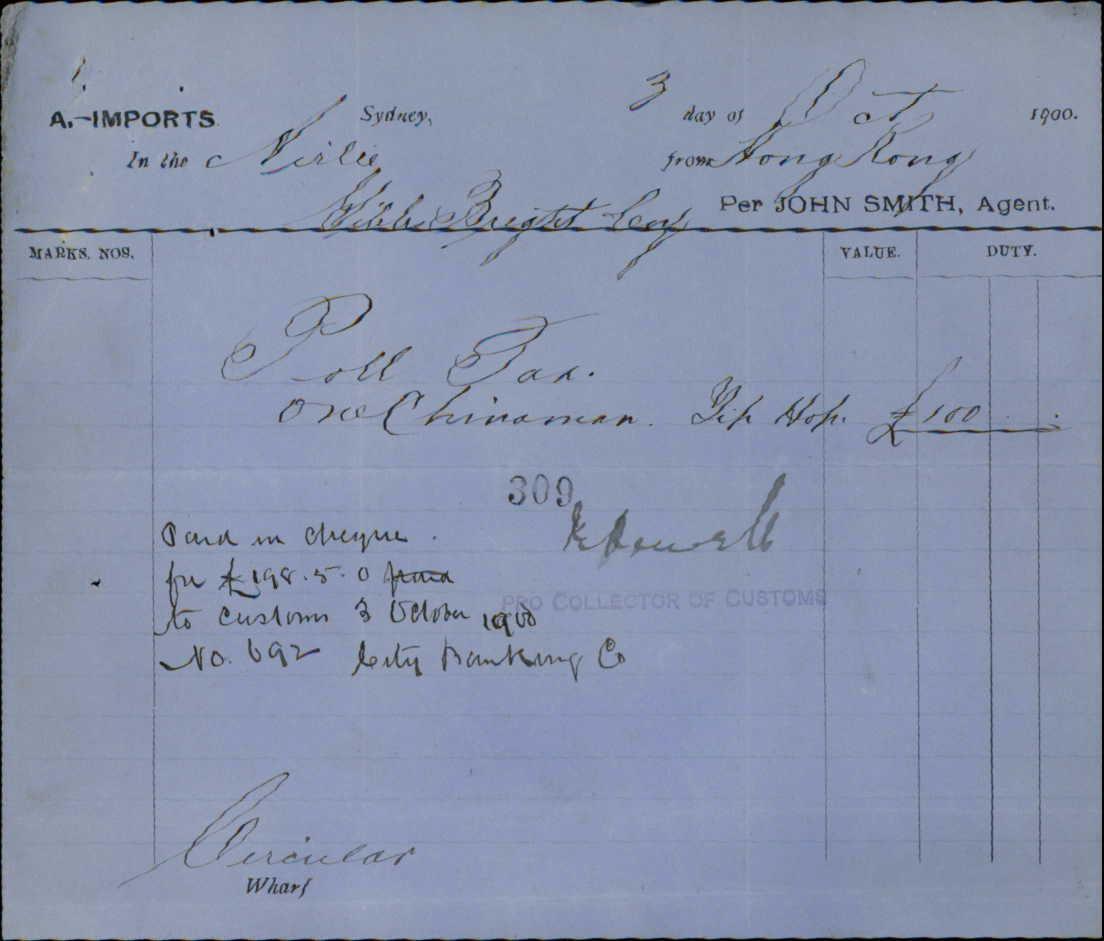 A.—IMPORTS. Sydney, 3 day of Oct 1900.
In the Airlie from Hong Kong
Gibbs Bright Coy Per JOHN SMITH, Agent.
MARKS. NOS. VALUE. DUTY.
Poll Tax.
One Chinaman. Yip Hop. £100
309
PRO COLLECTOR OF CUSTOMS
Paid in cheque.
for £198.5.0 paid
to Customs 3 October 1900
No. 692 City Banking Co
Circular
Wharf